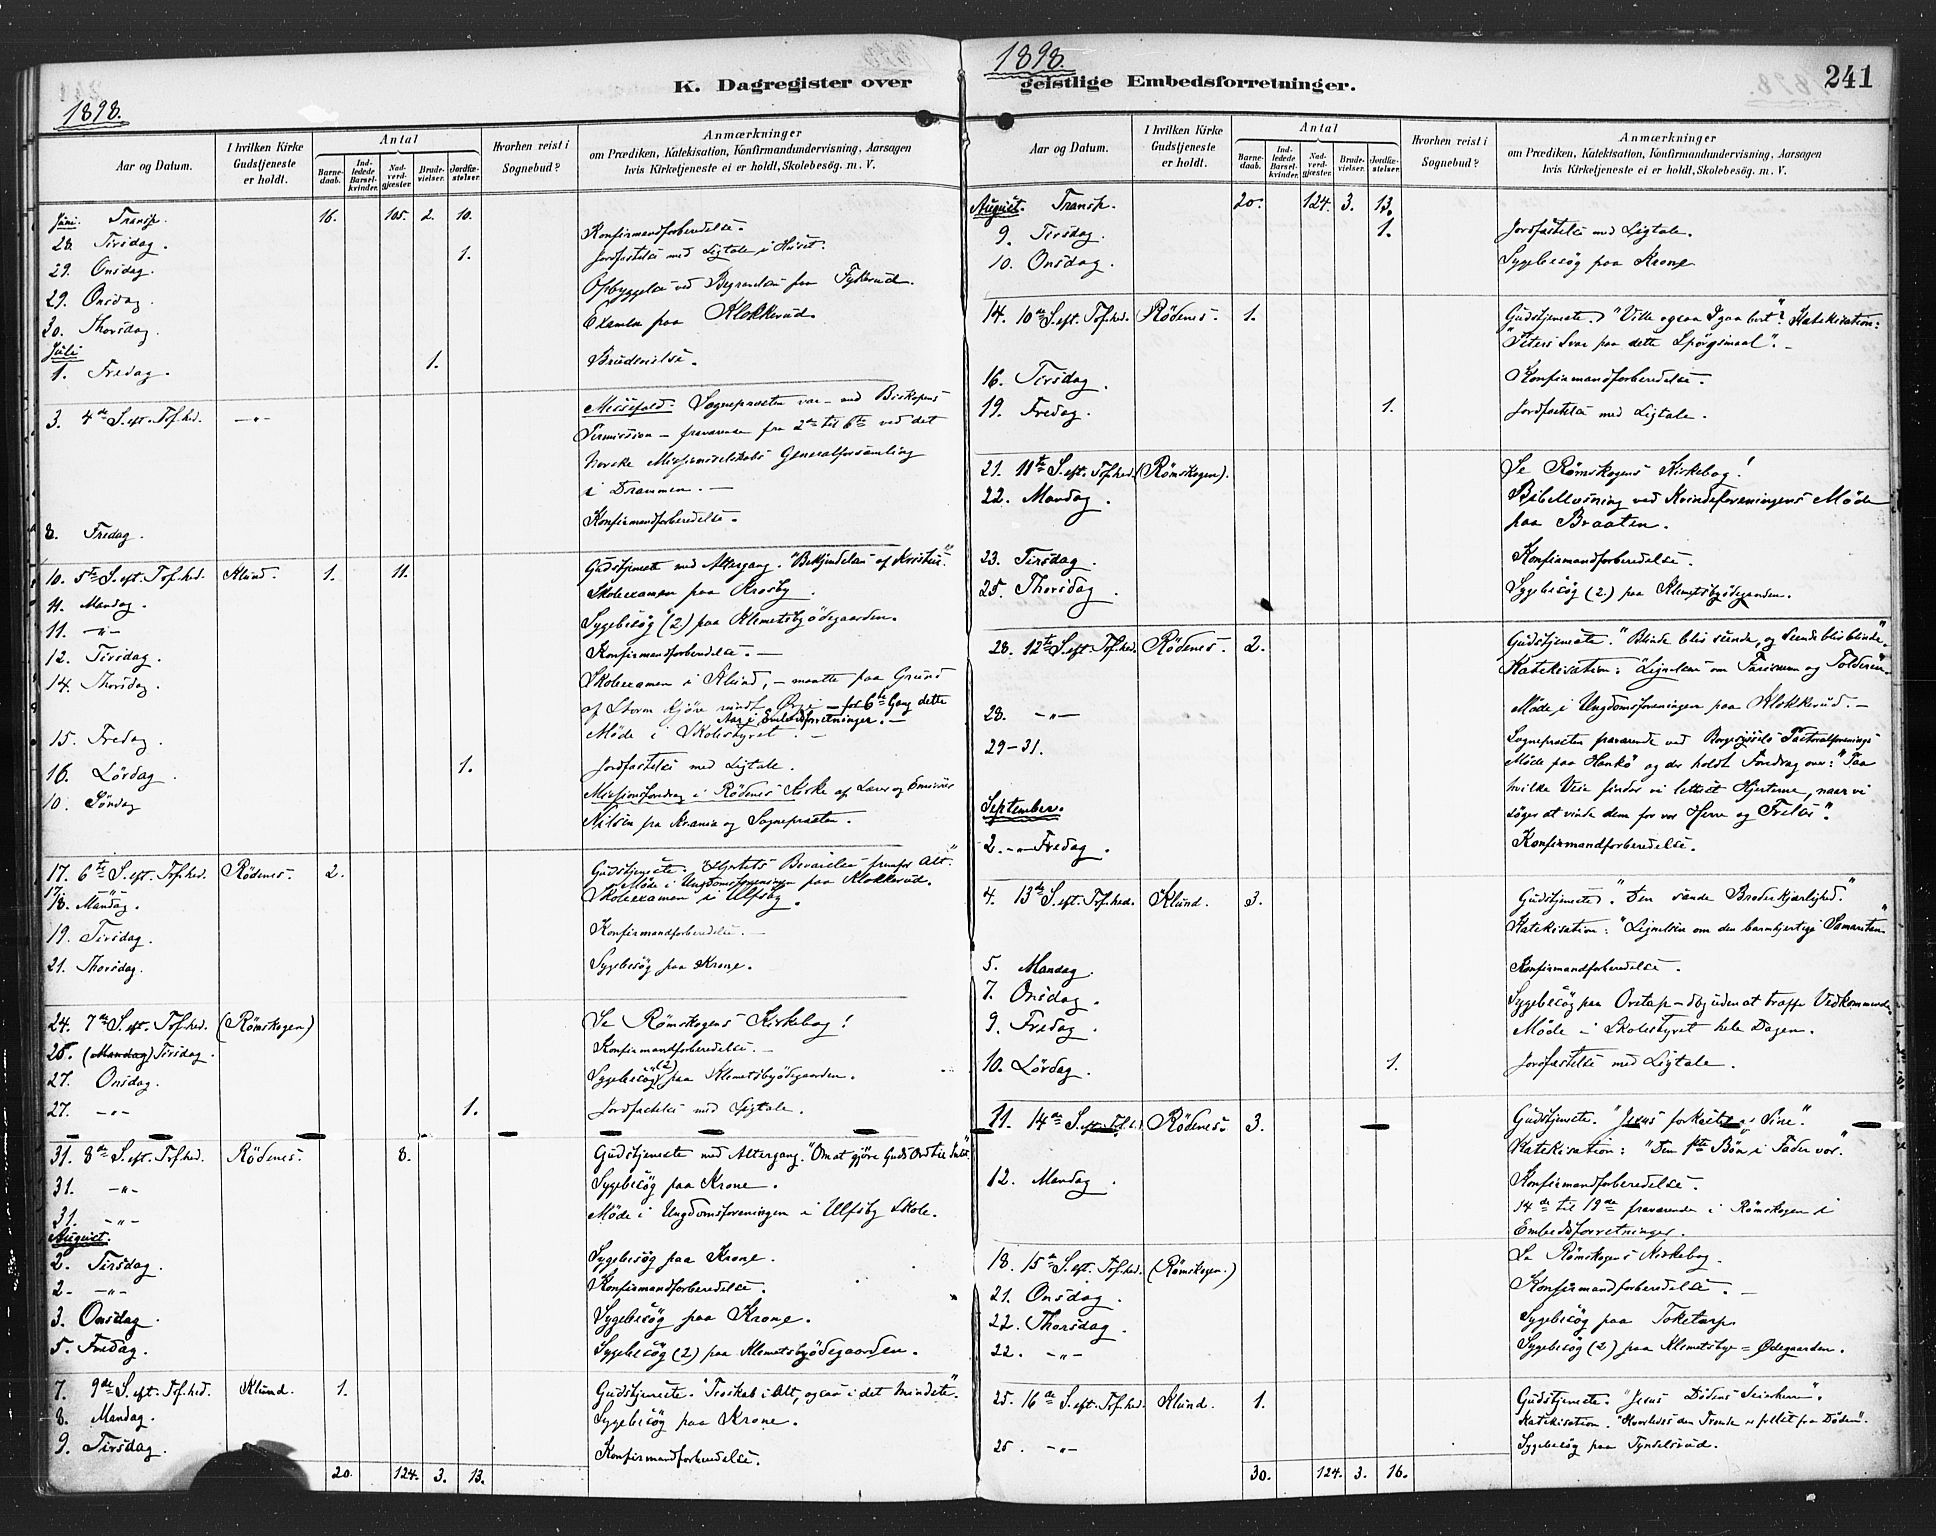 1898.
K. Dagregister over
1898.
Aar og Datum.
I hvilken Kirke Gudstjeneste er holdt.
Antal
Barne-daab.
Ind-ledede Barsel-kvinder.
Nad-verd-gjæster
Brude-vielser.
Jordfæ-stelser.
Hvorhen reist i Sognebud?
Anmærkninger
om Prædiken, Katekisation, Konfirmandundervisning, Aarsagen
hvis Kirketjeneste ei er holdt, Skolebesøg. m. V.
Juni. Transp. 16. 105. 2. 10.
28. Tirsdag. Konfirmandforberedelse.
29. Onsdag. 1. Jordfæstelse med Ligtale i Huset.
29. Onsdag. Opbyggelse ved Begravelse paa
30. Thorsdag. Examen paa Klokkerud.
Juli
1. Fredag. 1. Brudevielse.
3. 4de S. eft. Tref.hed. —"— Messefald. Sognepræsten var – med Biskopens
Permission – fraværende fra 2den til 6te ved det
norske Missionsselskabs Generalforsamling
i Drammen. —
8. Fredag. Konfirmandforberedelse.
10. 5te S. eft. Tref.hed. Klund. 1. 11. Gudstjeneste med Altergang. "Bekjendelsen af Kristus".
11. Mandag. Skoleexamen paa Krosby.
11. —"— Sygebesög (2) paa Klemetsbyödegaarden.
12. Tirsdag. Konfirmandforberedelse. —
14. Thorsdag. Skoleexamen i Klund, – maatte paa Grund
af Storm kjöre rundt Ørje – for 6te Gang dette
Aar i Embedsforretninger. —
15. Fredag. Möde i Skolestyret. —
16. Lördag. 1. Jordfæstelse med Ligtale.
10. Söndag Missionsforedrag i Rödenes Kirke af Lærer og Emissær
Nilsen fra og Sognepræsten.
17. 6te S. eft. Tref.hed. Rödenes. 2. Gudstjeneste. "Hjertets Bevarelse fremfor Alt."
17. Möde i Ungdomsforeningen paa Klokkerud.
18. Mandag. Skoleexamen i Ulfsby.
19. Tirsdag. Konfirmandforberedelse. —
21. Thorsdag. Sygebesög paa Krone.
24. 7de S. eft. Tref.hed. (Römskogen) Se Römskogens Kirkebog!
26. (Mandag) Tirsdag. Konfirmandforberedelse. —
27. Onsdag. Sygebesög (2) paa Klemetsbyödegaarden.
27. —"— 1. Jordfæstelse med Ligtale.
31. 8de S. eft. Tref.hed. Rödenes. 8. Gudstjeneste med Altergang. "Om at gjöre Guds Ord til Intet".
31. —"— Sygebesög paa Krone.
31. —"— Möde i Ungdomsforeningen i Ulfsby Skole.
August.
2. Tirsdag. Sygebesög paa Krone.
2. —"— Konfirmandforberedelse.
3. Onsdag. Sygebesög paa Krone.
5. Fredag. Sygebesög (2) paa Klemetsbyödegaarden.
7. 9de S. eft. Tref.hed. Klund. 1. Gudstjeneste. "Troskab i Alt, ogsaa i det mindste".
8. Mandag. Sygebesög paa Krone.
9. Tirsdag. Konfirmandforberedelse.
20. 124. 3. 13.
1898.
geistlige Embedsforretninger.
241
Aar og Datum.
I hvilken Kirke Gudstjeneste er holdt.
Antal
Barne-daab.
Ind-ledede Barsel-kvinder.
Nad-verd-gjæster.
Brude-vielser.
Jordfæ-stelser.
Hvorhen reist i Sognebud?
Anmærkninger
om Prædiken, Katekisation, Konfirmandundervisning, Aarsagen
hvis Kirketjeneste ei er holdt, Skolebesøg. m. V.
August. Transp. 20. 124. 3. 13.
9. Tirsdag. 1. Jordfæstelse med Ligtale.
10. Onsdag. Sygebesög paa Krone
14. 10de S. eft. Tref.hed. Rödenes. 1. Gudstjeneste. "Ville ogsaa I gaa bort"? Katekisation:
"Peters Svar paa dette Spörgsmaal". —
16. Tirsdag. Konfirmandforberedelse.
19. Fredag. 1. Jordfæstelse med Ligtale.
21. 11te S. eft. Tref.hed. (Römskogen). Se Römskogens Kirkebog!
22. Mandag. Bibellæsning ved Kvindeforeningens Möde
paa Braaten.
23. Tirsdag. Konfirmandforberedelse.
25. Thorsdag. Sygebesög (2) paa Klemetsbyödegaarden.
28. 12te S. eft. Tref.hed. Rödenes. 2. Gudstjeneste. "Blinde blir seende, og Seende blir blinde".
Katekisation: "Lignelsen om Farisæeren og Tolderen"
28. —"— Möde i Ungdomsforeningen paa Klokkerud. —
29–31. Sognepræsten fraværende ved Borgesyssels Pastoralforenings
Möde paa Hankö og der holdt Foredrag over: "Paa
hvilke Veie finder vi lettest Hjerterne, naar vi
söger at vinde dem for vor Herre og Frelser".
September.
2. Fredag. Konfirmandforberedelse.
4. 13de S. eft. Tref.hed. Klund. 3. Gudstjeneste. "Den sande Broderkjærlighed."
Katekisation: "Lignelsen om den barmhjertige Samaritan"
5. Mandag. Konfirmandforberedelse.
7. Onsdag. Sygebesög paa – dog uden at træffe Vedkommende
9. Fredag. Möde i Skolestyret hele Dagen.
10. Lördag. 1. Jordfæstelse med Ligtale.
11. 14de S. eft. Tref.hed. Rödenes. 3. Gudstjeneste. "Jesus forkastet af Sine".
Katekisation: "Den 1ste Bön i Fader vor."
12. Mandag. Konfirmandforberedelse.
14de til 19de fraværende i Römskogen i
Embedsforretninger.
18. 15de S. eft. Tref.hed. (Römskogen.) Se Römskogens Kirkebog.
21. Onsdag. Konfirmandforberedelse. —
22. Thorsdag. Sygebesög paa Toketorp.
22. —"— Sygebesög (2) paa Klemetsby=Ødegaarden.
25. 16de S. eft. Tref.hed. Klund. 1. Gudstjeneste. "Jesus Dödens Seierherre".
Katekisation.
25. —"— Sygebesög paa
30. 124. 3. 16.